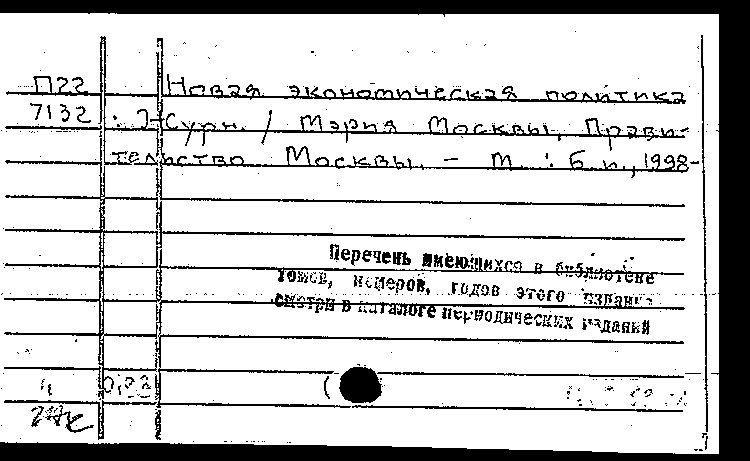 П22 Новая экономическая политика
7132 : Журн. / Мэрия Москвы, Прави-
тельство Москвы. - М. : Б.и., 1998-
Перечень имеющихся в библиотеке
томов, номеров, годов этого издания
смотри в каталоге периодических изданий